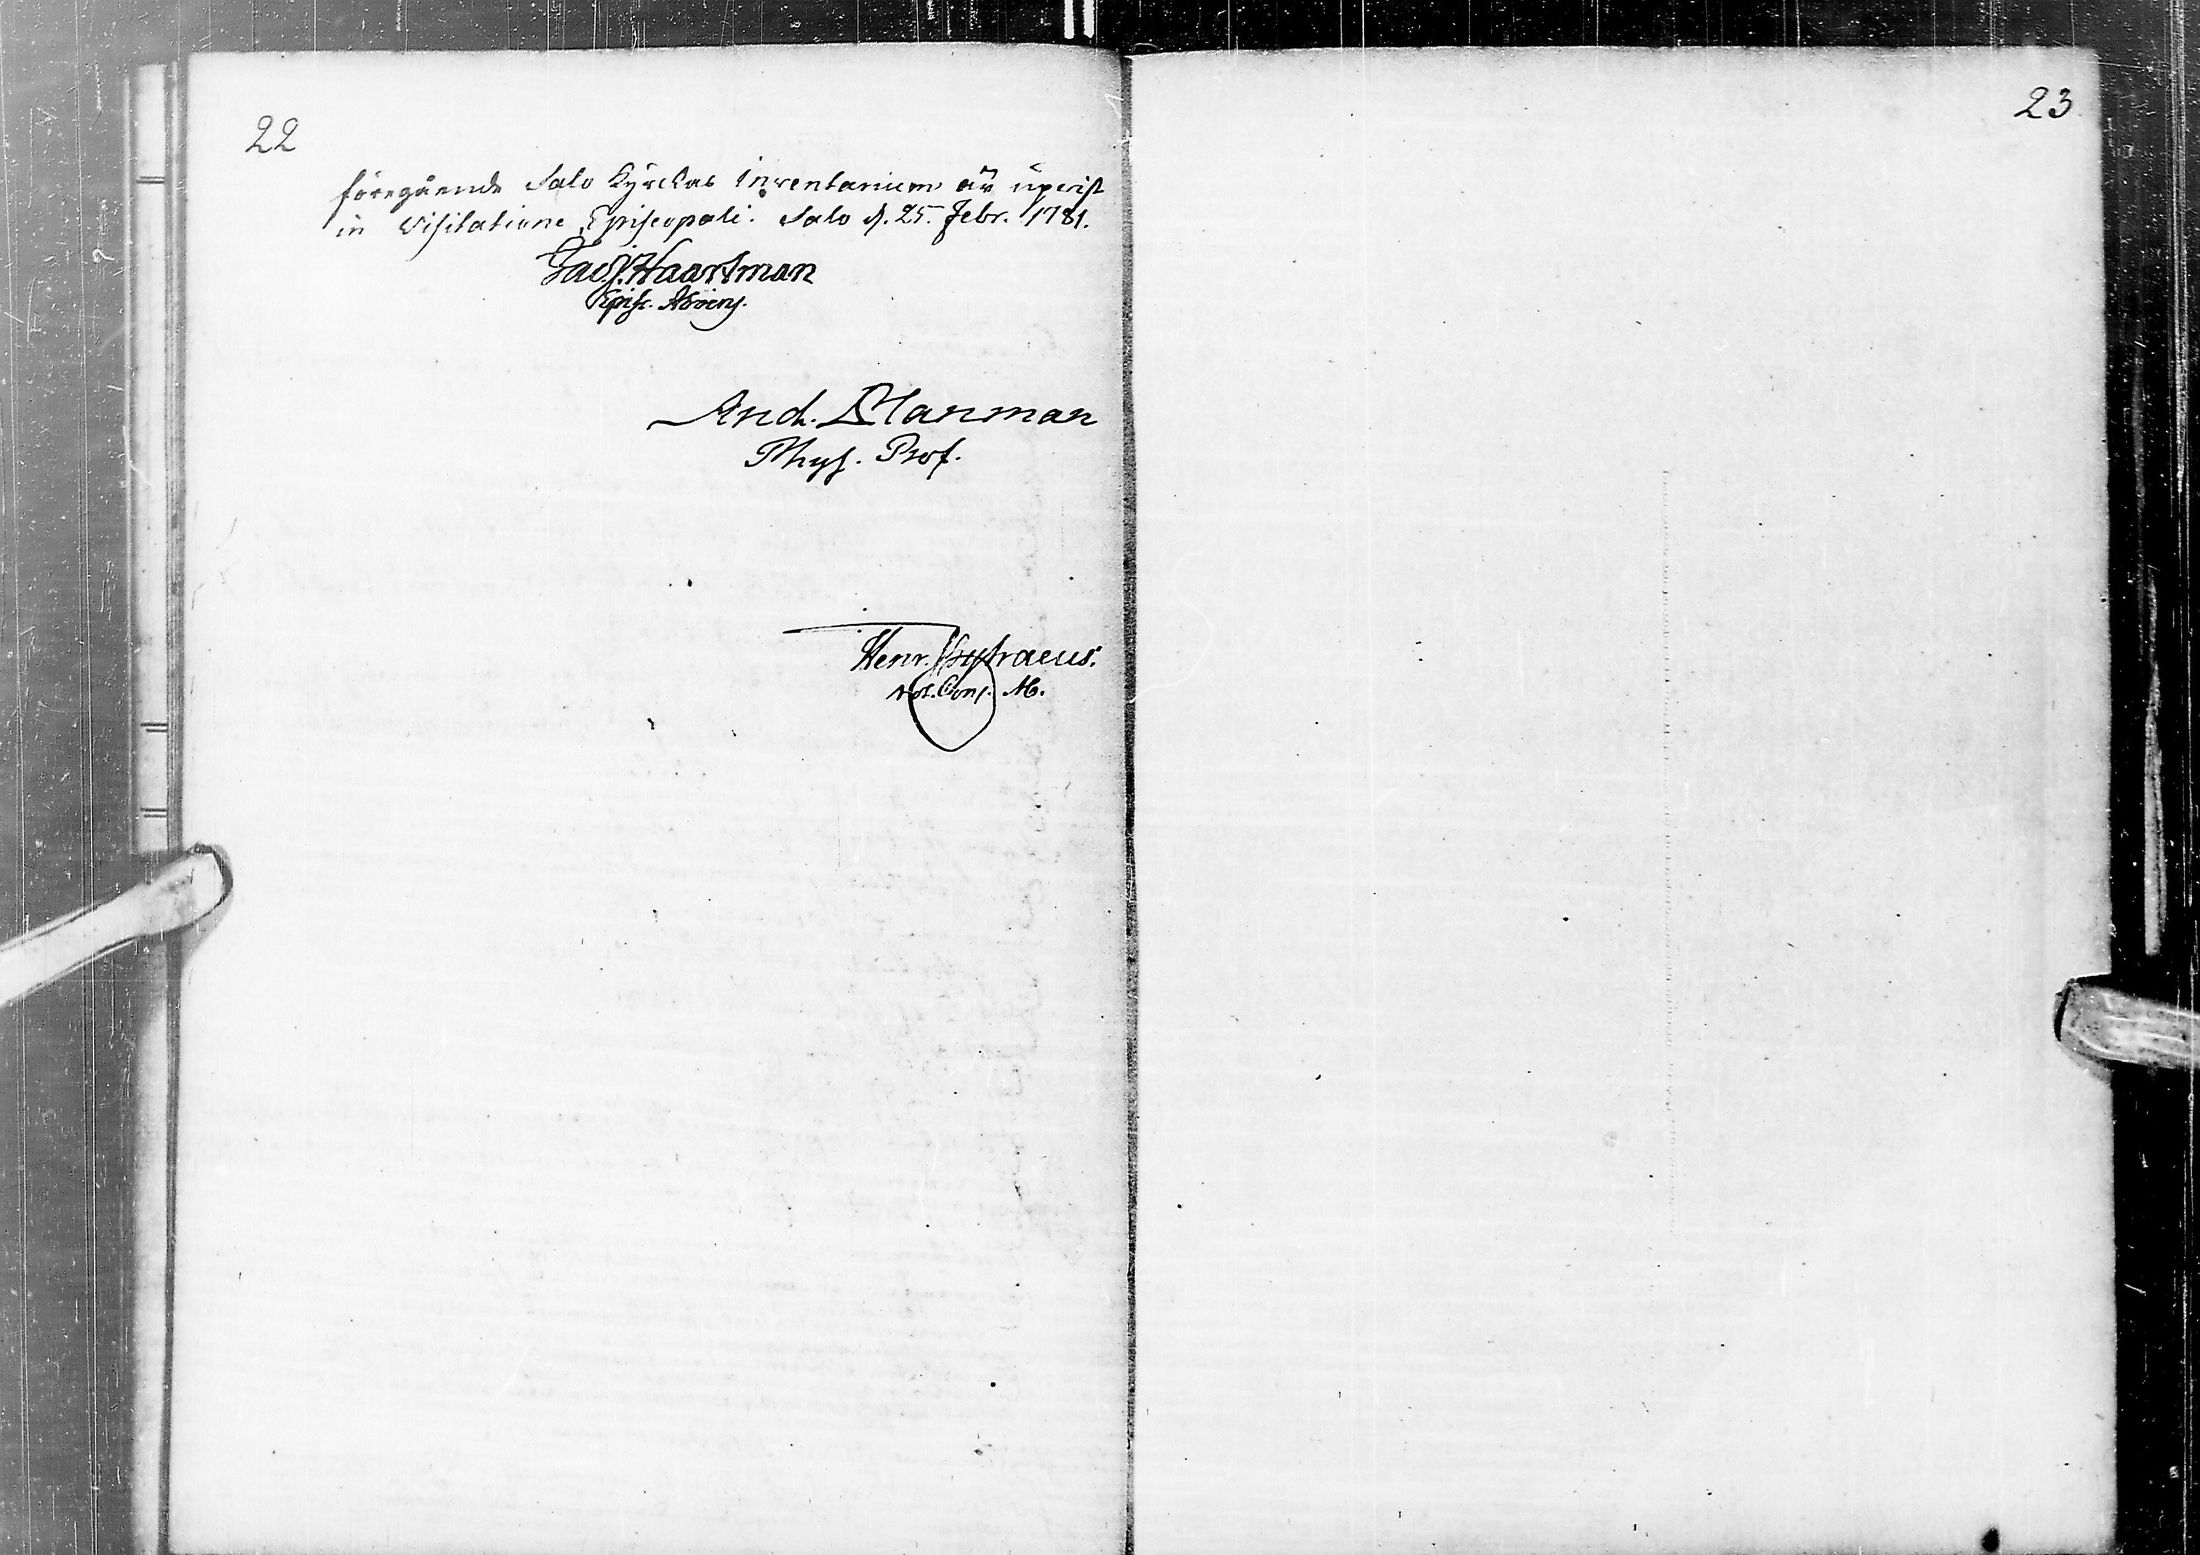 22
föregående Salo Kyrckas Inventarium är upvist
in Visitatione Episcopali. Salo d. 25. Febr. 1781.
Jac. Haartman
Episc. Aboens.
And. Planman
Phys. Prof.
Henr. Chytraeus.
Not. Cons. Ab.
23